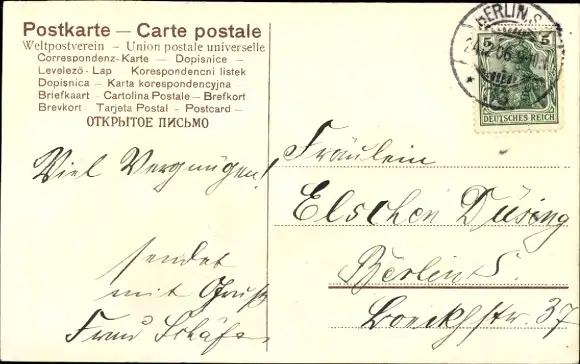 Postkarte — Carte postale
Weltpostverein – Union postale universelle
Correspondenz-Karte – Dopisnice –
Levelező-Lap   Korespondencni listek
Dopisnica – Karta korespondencyjna
Briefkaart – Cartolina Postale – Brefkort
Brevkort   Tarjeta Postal – Postcard –
ОТКРЫТОЕ ПИСЬМО
Viel Vergnügen!
sendet
mit Gruß
Frau Schäfer
BERLIN.S.
5 5
DEUTSCHES REICH
Fräulein
Elschen Düsing
Berlin S.
Boeckhstr. 37